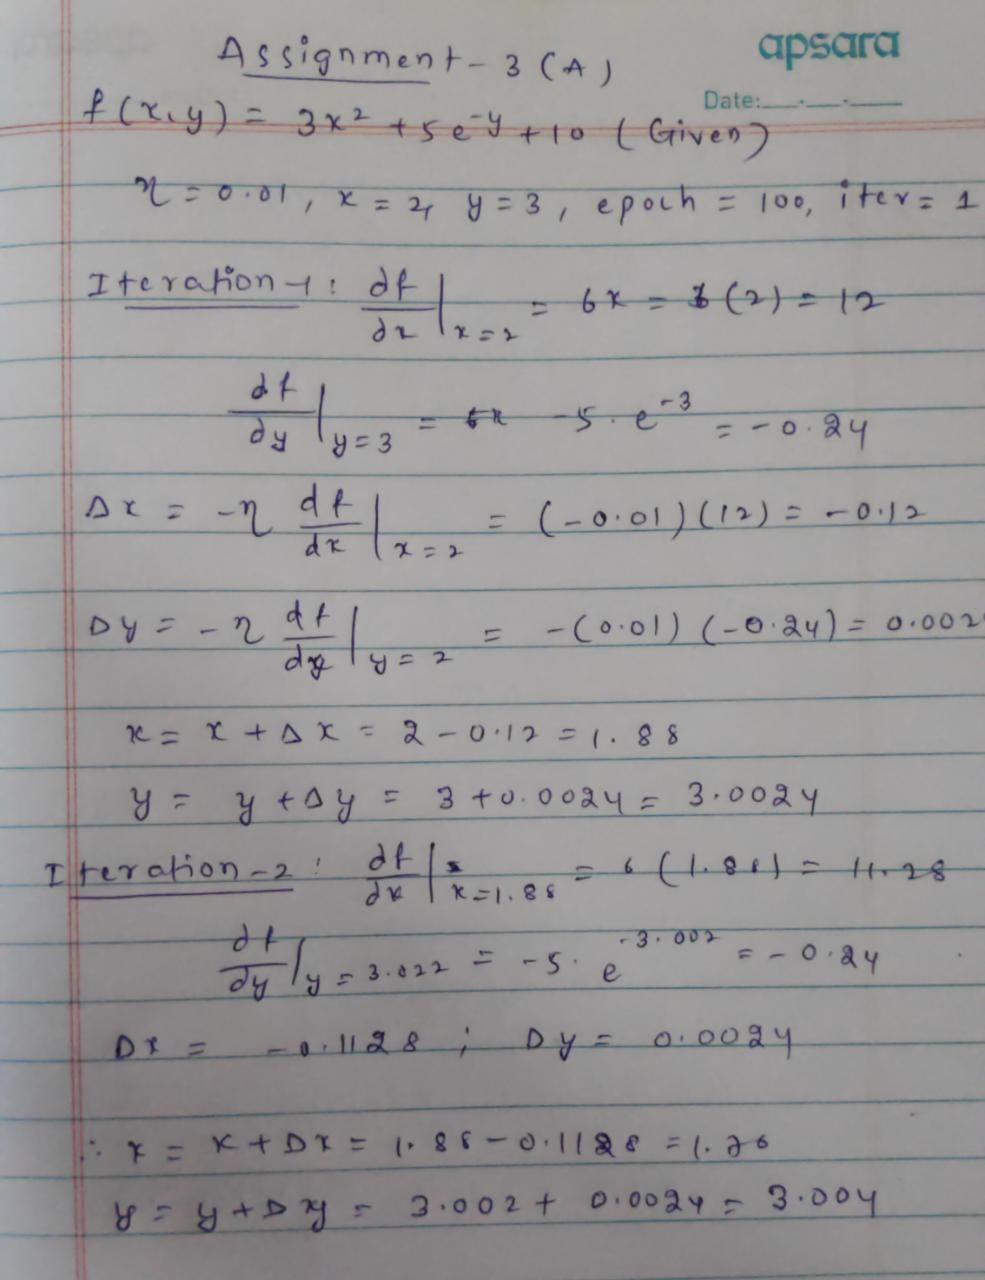 apsara
Assignment - 3 (A)
Date:
f(x,y) = 3x² + 5e^-y + 10 (Given)
η = 0.01, x = 2, y = 3, epoch = 100, iter = 1
Iteration-1: df/dx |x=2 = 6x = 6(2) = 12
df/dy |y=3 = -5.e^-3 = -0.24
Δx = -η df/dx |x=2 = (-0.01)(12) = -0.12
Δy = -η df/dy |y=2 = -(0.01)(-0.24) = 0.002
x = x + Δx = 2 - 0.12 = 1.88
y = y + Δy = 3 + 0.0024 = 3.0024
Iteration-2: df/dx |x=1.88 = 6(1.88) = 11.28
df/dy |y=3.022 = -5. e^-3.002 = -0.24
Δx = -0.1128 ; Δy = 0.0024
∴ x = x + Δx = 1.88 - 0.1128 = 1.76
y = y + Δy = 3.002 + 0.0024 = 3.004